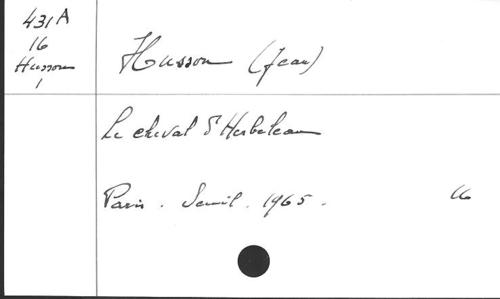 431 A
16
Husson
1
Husson (Jean)
Le cheval d'Herbeleau
Paris. Seuil. 1965.
16